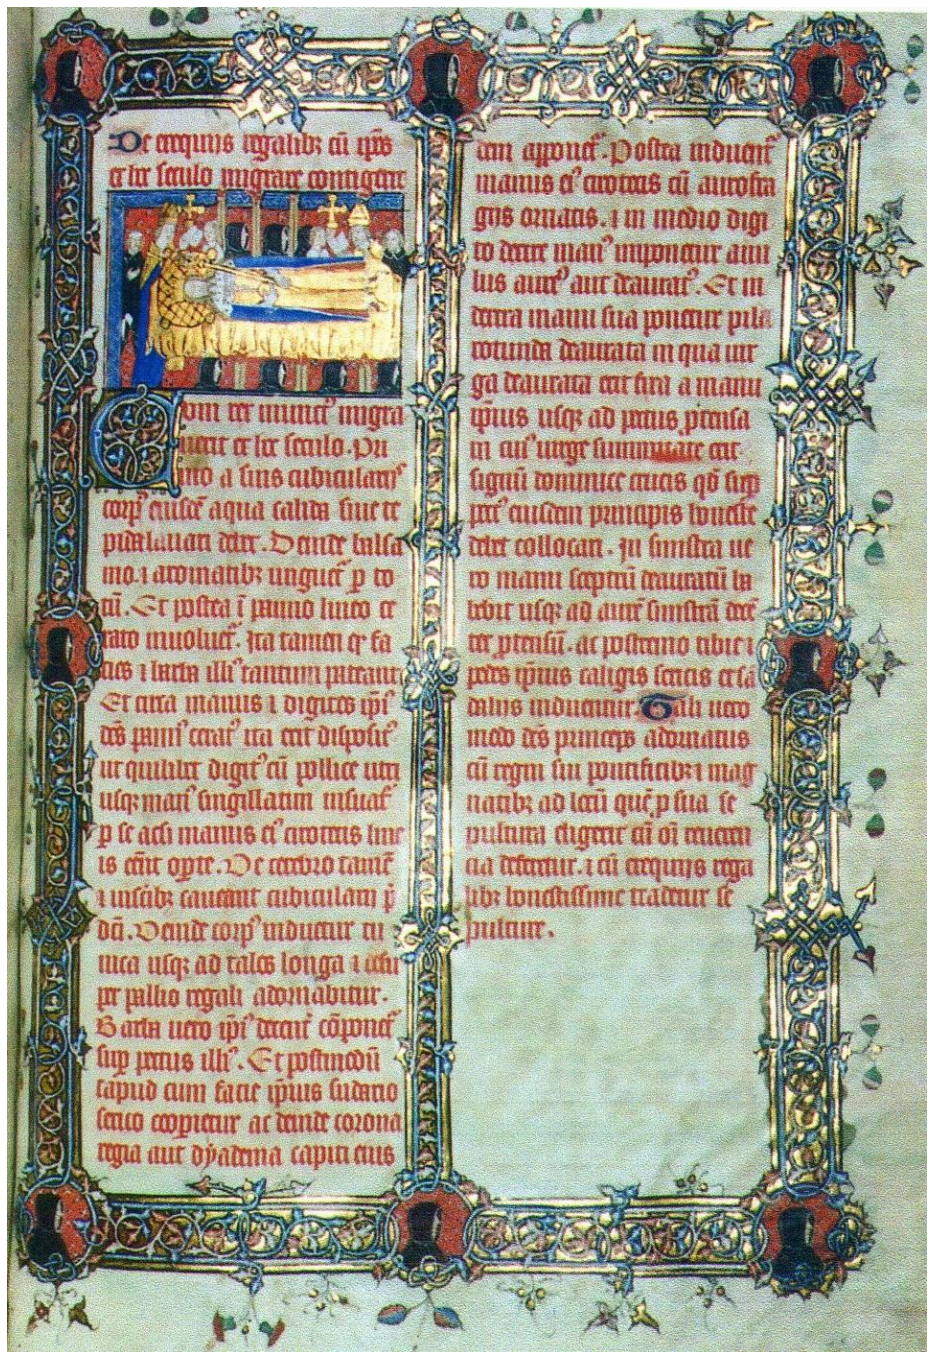 De exequiis regalib; cū ip̄os
ex hoc seculo migrare contigerit
Cum rex inunct᷒ migra
uerit ex hoc seculo. Pri
mo a suis cubiculariis
corp᷒ eiusdē aqua calida siue te
pida lauari debet. Deinde balsa
mo ⁊ aromatib; unguet᷑ p to
tū. Et postea ī panno lineo ce
rato inuoluet᷑. Ita tamen qͥ fa
cies ⁊ barba illi᷒ tantum pateant
Et circa manus ⁊ digitos ip̄i᷒
dc̄s pann᷒ cerat᷒ ita erit disposit᷒
ut quilibet digit᷒ cū pollice uti
usq; man᷒ singillatim insuat᷑
p se acsi manus ei᷒ cirotecis line
is eēnt opte. De cerebro tamē
⁊ uiscib; caueant cubicularii p̄
dc̄i. Deinde corp᷒ induetur tu
nica usq; ad talos longa ⁊ desu
per pallio regali adornabitur.
Barba uero ip̄i᷒ decent᷑ cōponet᷑
sup pectus illi᷒. Et postmodū
caput cum facie ip̄ius sudario
serico coopietur ac deinde corona
regia aut dyadema capiti eius
dem apponet᷑. Postea induent᷑
manus ei᷒ cirotecis cū aurifra
giis ornatis. ⁊ in medio digi
to dextre man᷒ imponetur anu
lus aure᷒ aut deaurat᷒. Et in
dextra manu sua ponetur pila
rotunda deaurata in qua uir
ga deaurata erit fixa a manu
ip̄ius usq; ad pectus p̄tensa
in cui᷒ uirge summitate erit
signū dominice crucis qd̄ sup
pect᷒ eiusdem principis honeste
debet collocari. In sinistra ue
ro manu sceptrū deauratū ha
bebit usq; ad aurē sinistrā decē
ter p̄tensū. ac postremo tibie ⁊
pedes ip̄ius caligis sericis et sā
daliis induentur. Tali uero
modo dc̄s princeps adornatus
cū regni sui pontificib; ⁊ mag
natib; ad locū quē p sua se
pultura eligerit cū oī reueren
cia deferetur. ⁊ cū exequiis rega
lib; honestissime tradetur se
pulture.